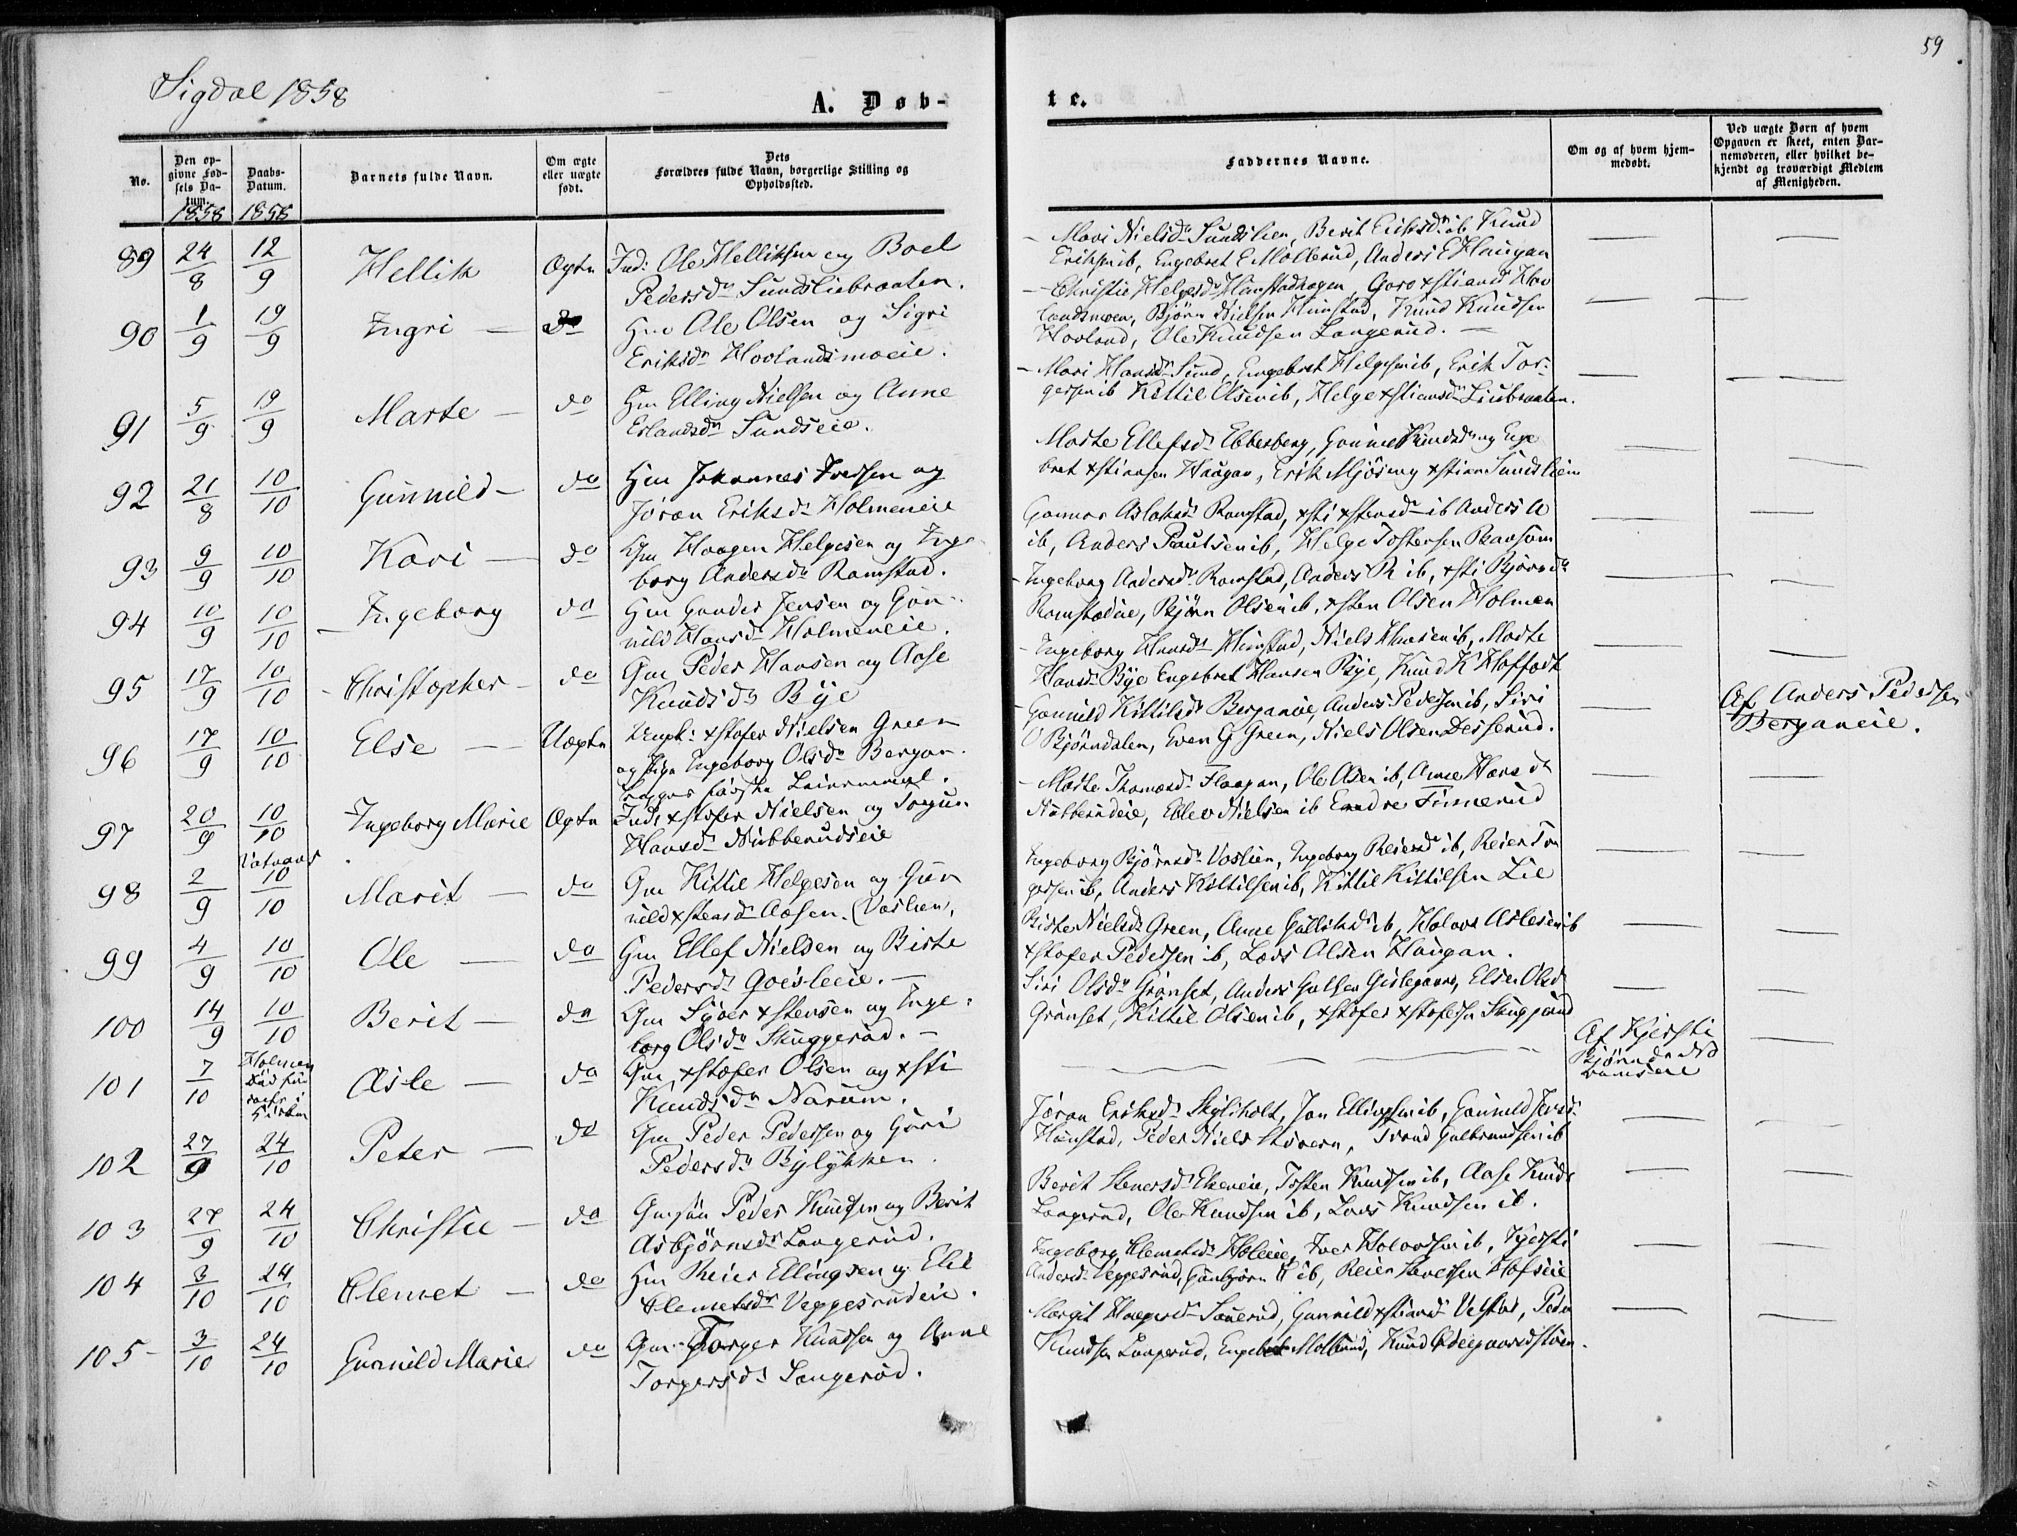 59
Sigdal 1858
A. Døb-
te.
No.
Den op-
givne Fød-
sels Da-
tum.
1858
Daabs-
Datum.
1858
Barnets fulde Navn.
Om ægte
eller uægte
født.
Dets
Forældres fulde Navn, borgerlige Stilling og
Opholdssted.
Faddernes Navne.
Om og af hvem hjem-
medøbt.
Ved uægte Børn af hvem
Opgaven er skeet, enten Bar-
nemoderen, eller hvilket be-
kjendt og troværdigt Medlem
af Menigheden.
89 24/8 12/9 Hellik Ægte Ind: Ole Helliksen og Boel
Pedersdr Sundsliebraaten.
Mari Nielsdr Sundslien, Berit Eriksdr ib Knud
Eriksen ib, Engebret E Mollerud, Anders E Haugan
90 1/9 19/9 Ingri — do Hm Ole Olsen og Sigri
Eriksdr Hovlandsmoeie.
Christie Helgesdr Himstadhagen, Goro xstiansd Hov
landsmoen, Bjørn Nielsen Himstad, Knud Knudsen
Hovland, Ole Knudsen Langerud. —
91 5/9 19/9 Marte — do Hm Elling Nielsen og Anne
Erlandsdr Sundseie.
Mari Hansdr Sund, Engebret Helgesen ib, Erik Tor-
gersen ib Kittil Olsen ib, Helge xstiansdr Liubraaten.
92 21/8 10/10 Gunnild — do Hm Johannes Iversen og
Jøran Eriksdr Holmeneie
Marte Ellefsdr Ebbesberg, Gunnild Knudsdr og Enge
bret xstiansen Haugan, Erik Mjøseng xstian Sundslien
93 9/9 10/10 Kari — do Gm Haagen Helgesen og Inge
borg Andersdr Ramstad.
Gunnar Aslaksdr Ramstad, xsti xstensdr ib Anders A
ib, Anders Paulsen ib, Helge Tostensen Ransam
94 10/9 10/10 Ingeborg do Hm Gunder Jensen og Gun-
nild Hansdr Holmeneie.
Ingeborg Andersdr Ramstad, Anders R ib, xsti Bjørnsdr
Ramstadeie, Bjørn Olsen ib, xsten Olsen Holmen
95 17/9 10/10 Christopher — do Gm Peder Hansen og Aase
Knudsdr Bye
Ingeborg Hansdr Himstad, Niels Hansen ib, Marte
Hansdr Bye Engebret Hansen Bye, Knud K Hoffart
96 17/9 10/10 Else — Uægte Ungk: xstofer Nielsen Green
og Pige Ingeborg Olsdr Bergan.
begges første Leiermaal.
Gunnild Kittilsdr Berganeie, Anders Pedersen ib, Siri
O Bjørndalen, Even G Green, Niels Olsen Desserud.
Af Anders Pedersen
Berganeie.
97 20/9 10/10 Ingeborg Marie Ægte Ind: xstofer Nielsen og Torgun
Hansdr Nubberudseie
Marte Thomasdr Flaagan, Ole Olsen ib, Anne Hansdr
Nubberudeie, Eblev Nielsen ib Endre Finnerud
98 2/9 10/10 Marit — do Gm Kittil Helgesen og Gun
nild xstensdr Aasen. (Vaslien,
Ingeborg Bjørnsdr Vaslien, Ingeborg Reiersdr ib, Reier Tor
gersen ib, Anders Kittilsen ib, Kittil Kittilsen Lie
99 4/9 10/10 Ole — do Gm Ellef Nielsen og Birte
Pedersdr —
Birte Nielsdr Green, Anne ib, Halvor Aslesen ib
xstofer Pedersen ib, Lars Olsen Haugan.
100 14/9 10/10 Berit — do Gm Syver xstensen og Inge-
borg Olsdr Skuggerud. —
Siri Olsdr Grønset, Anders Gislegaard, Else Olsd
Grønset, Kittil Olsen ib, xstofer xstofersen Skuggerud
101 7/10 Holmen
død før
i
Kirken Asle — do Gm xstofer Olsen og xsti
Knudsdr Narum.
Af Kjersti
Bjørnsdr
102 27/9 24/10 Peter — do Gm Peder Pedersen og Guri
Pedersdr Bylykken.
Jøran Eriksdr Skyliholt, Jon Ellingsen ib, Gunnild Jensdr
Himstad, Peder Niels Støvern, Trond Gulbrandsen ib
103 27/9 24/10 Christie — do Gm Peder Knudsen og Berit
Asbjørnsdr Langerud.
Berit Stenersdr Ekeneie, Tosten Knudsen ib, Aase Knuds
Langerud, Ole Knudsen ib, Lars Knudsen ib.
104 3/10 24/10 Clemet — do Hm Reier Ellingsen og Eli
Clemetsdr Veggesrudeie.
Ingeborg Clemetsdr Holeie, Iver Halvorsen ib, Kjersti
Andersdr Veggesrud, Gunbjørn H ib, Reier Iversen Hofseie
105 3/10 24/10 Gunnild Marie do Gm Torger Knudsen og Anne
Torgersdr Langerud.
Margit Haagensdr Sønerud, Gunnild xstiansdr Velstad, Peder
Knudsen Langerud, Engebret Mollerud, Knud Ødegaardstøen.